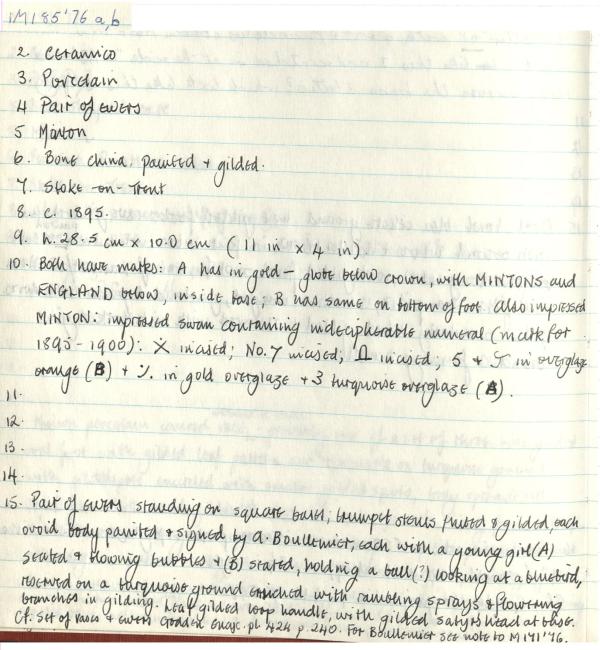 IM185'76 a,b
2. Ceramics
3. Porcelain
4 Pair of ewers
5 Minton
6. Bone china painted + gilded.
7. Stoke-on-Trent
8. c. 1895.
9. h. 28.5 cm x 10.0 cm (11 in x 4 in).
10. Both have marks: A has in gold - globe below crown, with MINTONS and
ENGLAND below, inside base; B has same on bottom of foot also impressed
MINTON: impressed swan containing indecipherable numeral (mark for
1895-1900): incised; No. 7 incised; incised; 5 + in overglaze
orange (B) + ·/. in gold overglaze + 3 turquoise overglaze (B).
11.
12.
13.
14.
15. Pair of ewers standing on square bases; trumpet stems fluted & gilded, each
ovoid body painted & signed by A. Boullemier, each with a young girl (A)
seated & blowing bubbles + (B) seated, holding a ball (?) looking at a bluebird,
reserved on a turquoise ground enriched with rambling sprays & flowering
branches in gilding. Leaf gilded loop handle, with gilded satyrs head at base.
Cf. Set of vases & ewers Godden Encyc. pl. 424 p. 240. For Boullemier see note to M171'76.